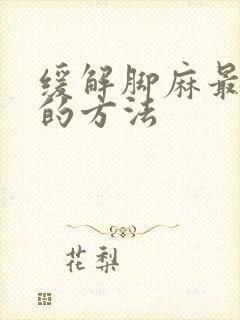 缓解脚麻最
的方法
花梨